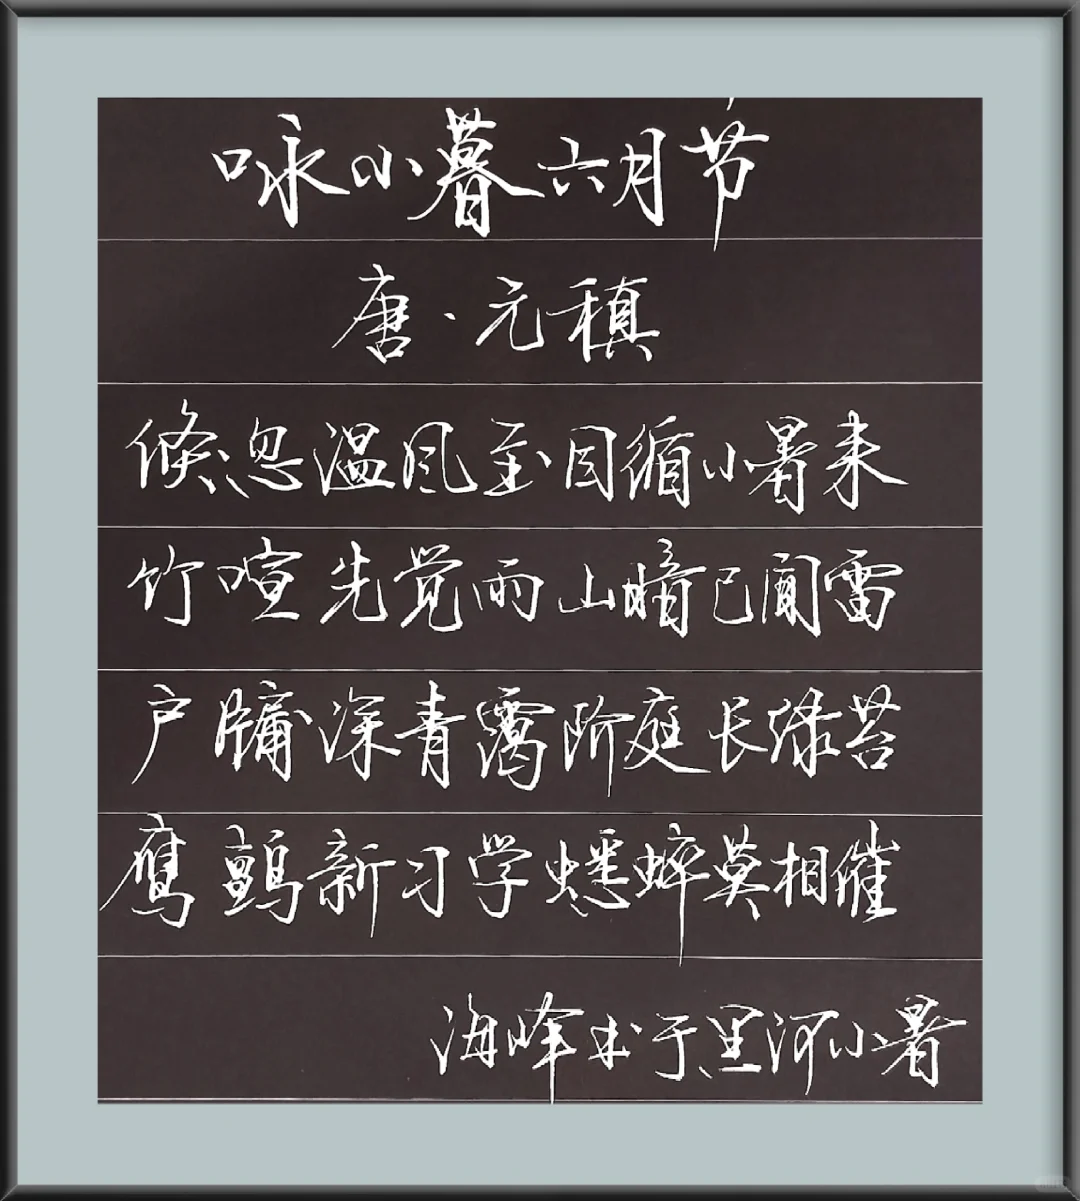 咏小暮六月节
唐·元稹
倏忽温风至因循小暑来
竹喧先觉雨山暗已闻雷
户牖深青霭阶庭长绿苔
鹰鹯新习学蟋蟀莫相催
海峰书于黑河小暑